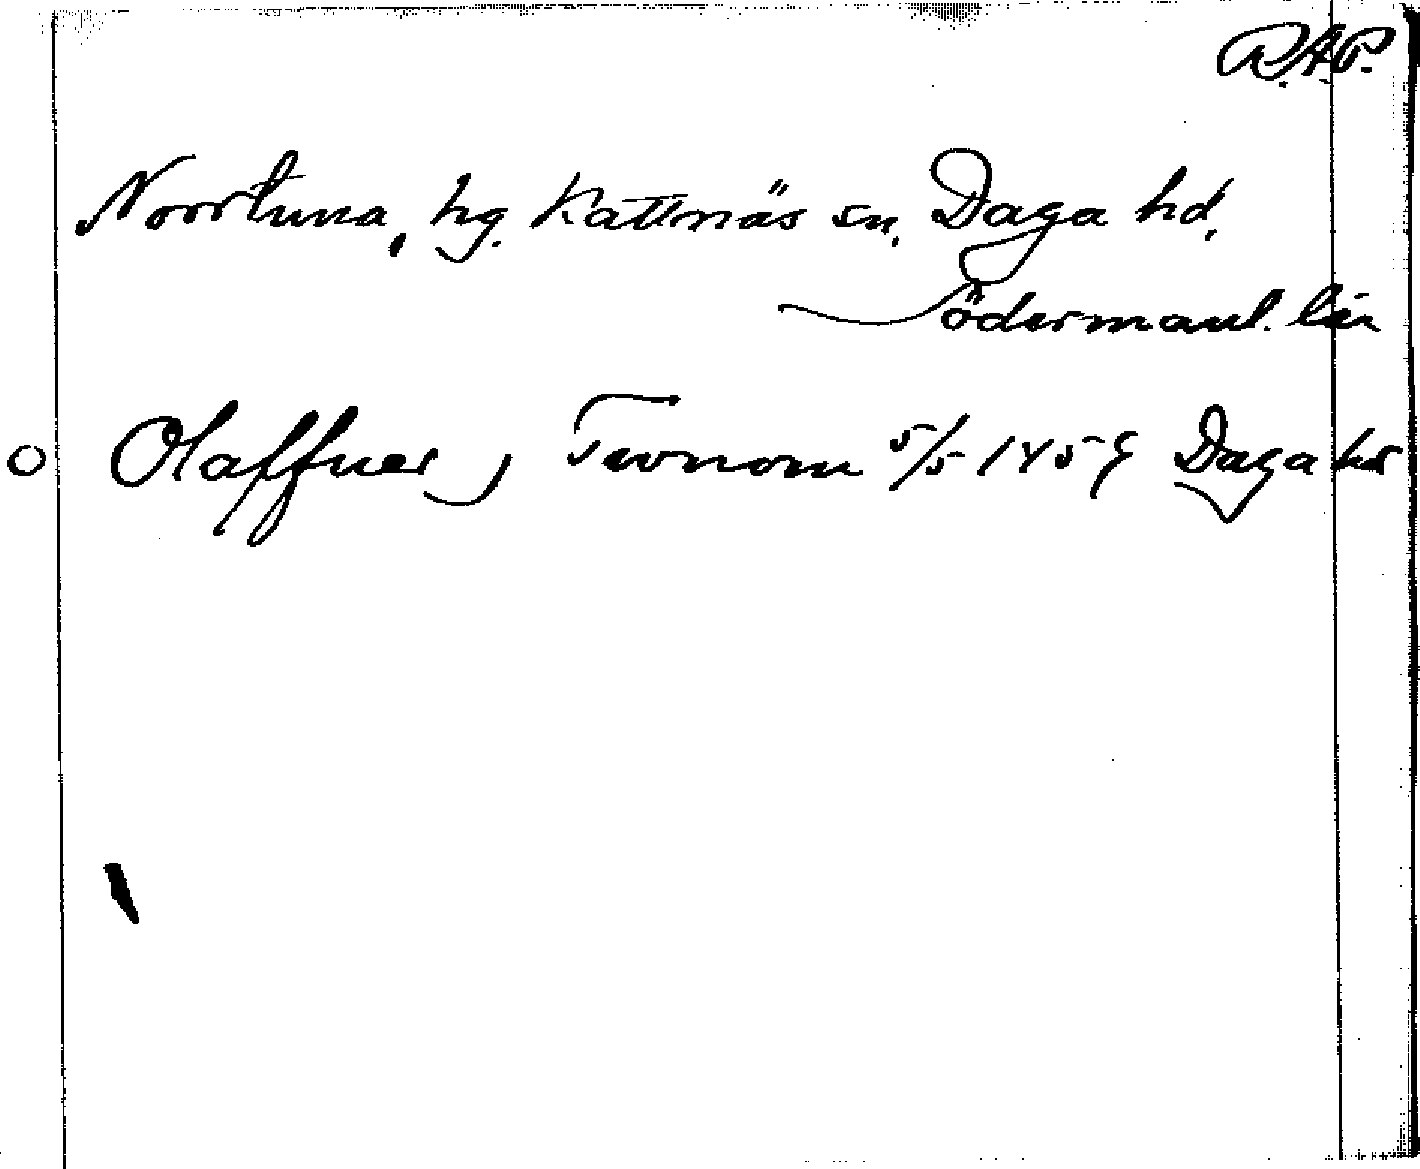 R.A.P.
Norrtuna, hg. Kattnäs sn, Daga hd,
Södermanl. län
Olaffuer j Twnom 5/5 1459 Daga hd